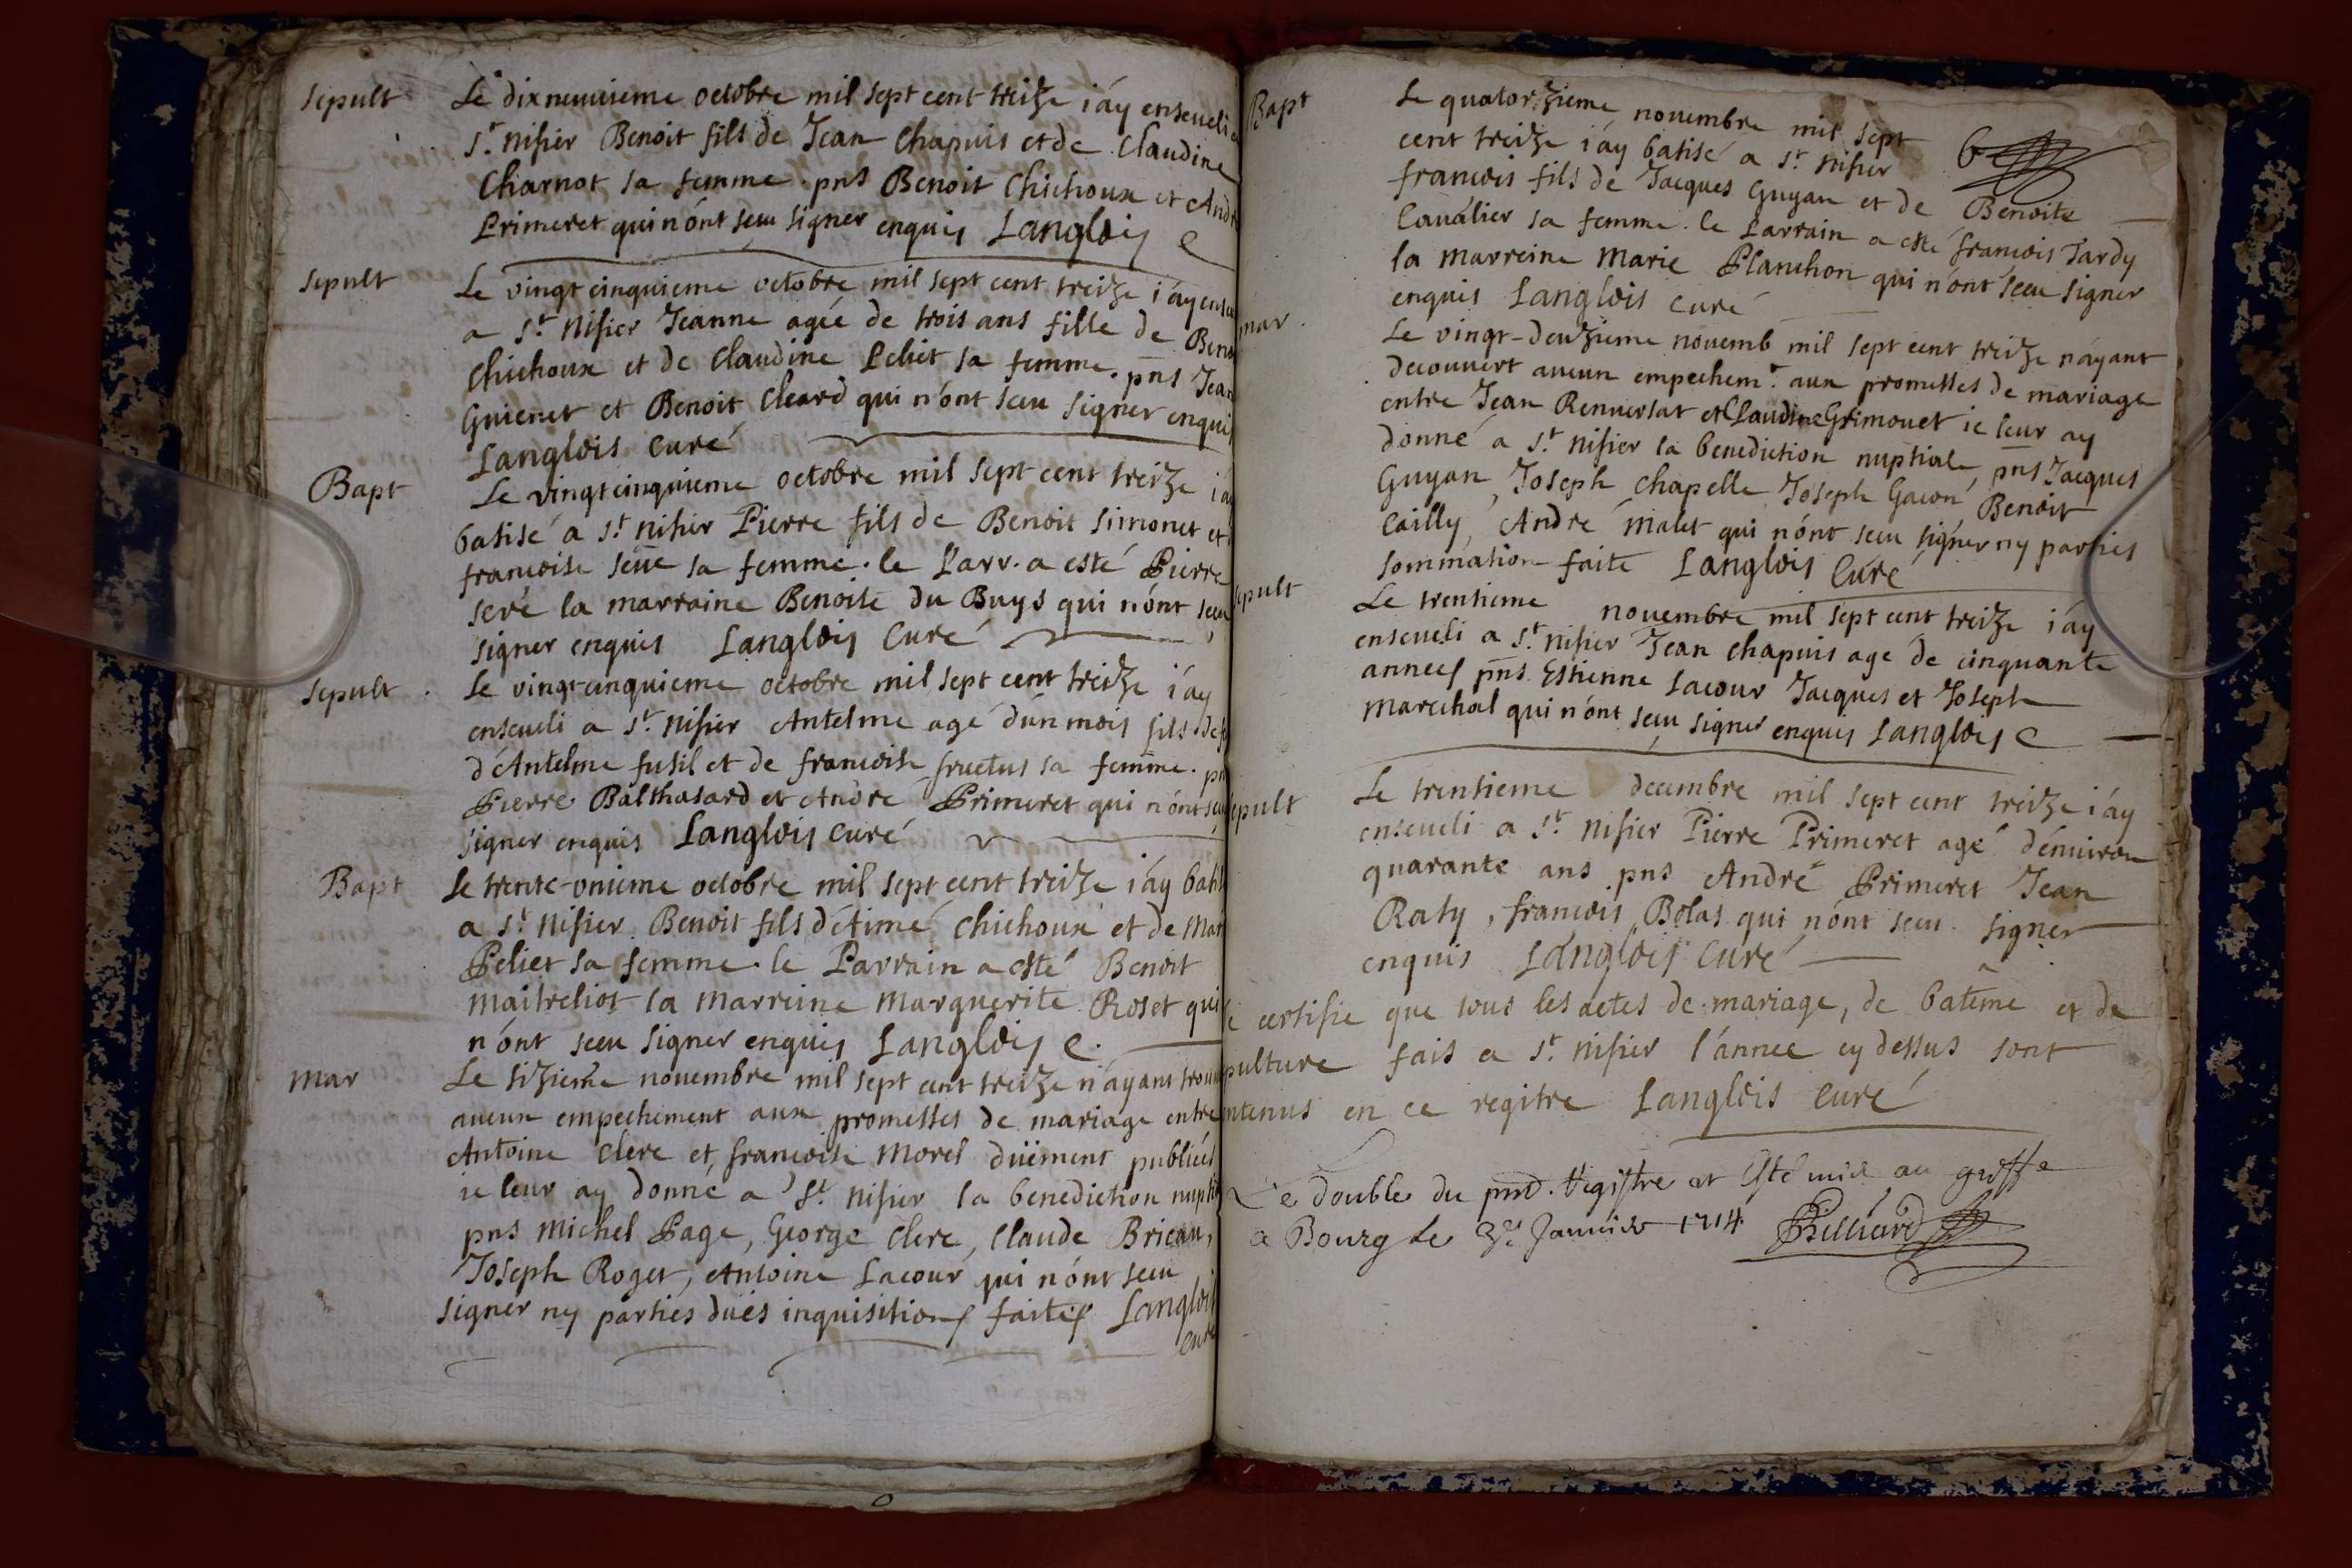 sepult
Le dixneuuieme octobre mil sept cent treize i'ay enseueli
St. nisier Benoit fils de Jean Chapuis et de Claudine
Charnot sa femme. pns Benoit Chichoux et André
Primeret qui n'ont sceu signer enquis Langlois C
sepult
Le vingt cinquieme octobre mil sept cent treize i'ay
a St. nisier Jeanne agée de trois ans fille de
Chichoux et de Claudine Peliet sa femme. pns Jean
Guienet et Benoit Cleard qui n'ont sceu signer enquis
Langlois Curé
Bapt
Le vingtcinquieme octobre mil sept cent treize i'ay
batisé a St. nisier Pierre fils de Benoit simonet et
francoise sa femme. le Parr. a esté Pierre
seré la marraine Benoite du Buys qui n'ont sceu
signer enquis Langlois Curé
sepult.
Le vingt-cinquieme octobre mil sept cent treize i'ay
enseueli a St. nisier Antelme agé d'un mois fils
d'Antelme fusil et de francoise fructus sa femme.
Pierre Balthasard et André Primeret qui n'ont sceu
signer enquis Langlois Curé
Bapt
Le trente-onieme octobre mil sept cent treize i'ay
a St. nisier Benoit fils d'étimé Chichoux et de
Peliet sa femme. le Parrain a esté Benoit
maitreliot la Marreine Marguerite Roset qui
n'ont sceu signer enquis Langlois C.
Mar
Le sizieme novembre mil sept cent treize n'ayant
aucun empechement aux promesses de mariage entre
Antoine Clere et francoise Morel düement publiées
ie leur ay donné a St. nisier la benediction
pns Michel Page, George Clere, Claude Bricau,
Joseph Roget, Antoine Lacour qui n'ont sceu
signer ny parties dues inquisitions faites Langlois
Curé
Bapt
Le quatorzieme novembre mil sept
cent treize i'ay batisé a St. nisier
francois fils de Jacques Guyan et de Benoite
Cavalier sa femme. le Parrain a esté francois Tardy
la marreine Marie Planchon qui n'ont sceu signer
enquis Langlois Curé
mar.
Le vingt-deuzieme novemb mil sept cent treize n'ayant
decouvert aucun empechemt. aux promesses de mariage
entre Jean Renuersat et Claudine Grimouet ie leur ay
donné a St. nisier la benediction nuptiale, pns Jacques
Guyan, Joseph Chapelle Joseph Gacon, Benoit
Cailly, André malet qui n'ont sceu signer ny parties
sommation faite Langlois Curé
sepult
Le trentieme novembre mil sept cent treize i'ay
enseueli a St. nisier Jean Chapuis agé de cinquante
années pns Estienne Lacour Jacques et Joseph
Marechal qui n'ont sceu signer enquis Langlois C
sepult
Le trentieme decembre mil sept cent treize i'ay
enseueli a St. nisier Pierre Primeret agé d'enuiron
quarante ans pns André Primeret Jean
Raty, francois Bolas qui n'ont sceu signer
enquis Langlois Curé
certifie que tous les actes de mariage, de batême et de
pulture fais a St. nisier l'année cy dessus sont
ntenus en ce regitre Langlois Curé
Le double du pnt. Registre at Esté mis au greffe
a Bourg Le 3e Januier 1714